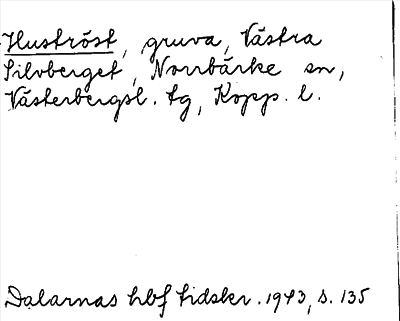 Huströst, gruva, Västra
Silvberget, Norrbärke sn,
Västerbergsl. tg, Kopp. l.
Dalarnas hbf tidskr. 1943, s. 135